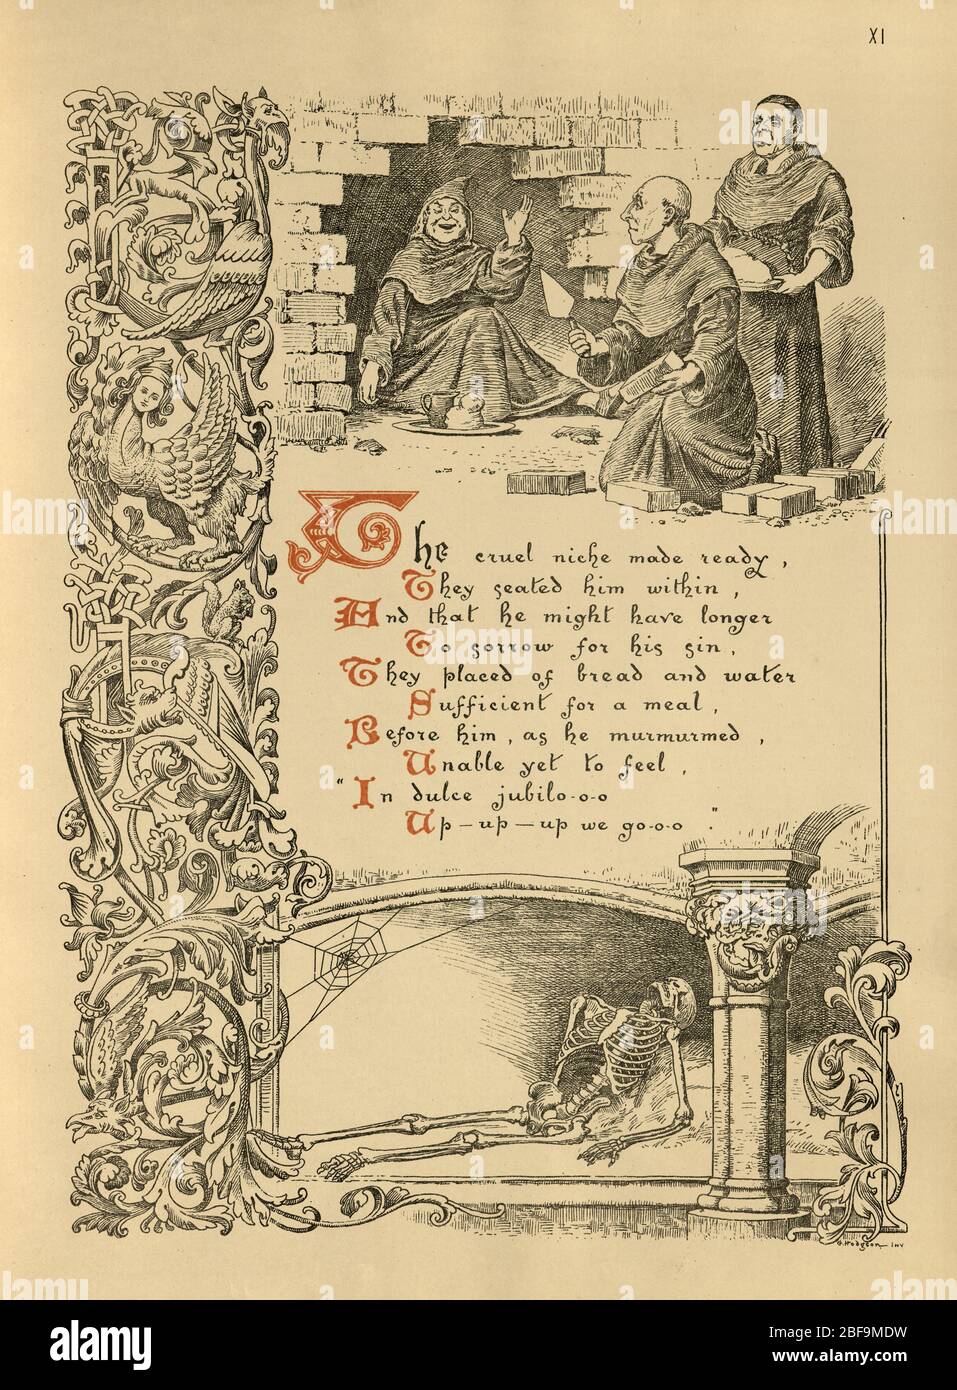 XI
The cruel niche made ready,
They seated him within,
And that he might have longer
To sorrow for his sin,
They placed of bread and water
Sufficient for a meal,
Before him, as he murmured,
Unable yet to feel,
"In dulce jubilo-o-o
Up-up-up we go-o-o."
G. Hodgson Inv
a
alamy
Image ID: BF9MDW
www.alamy.com